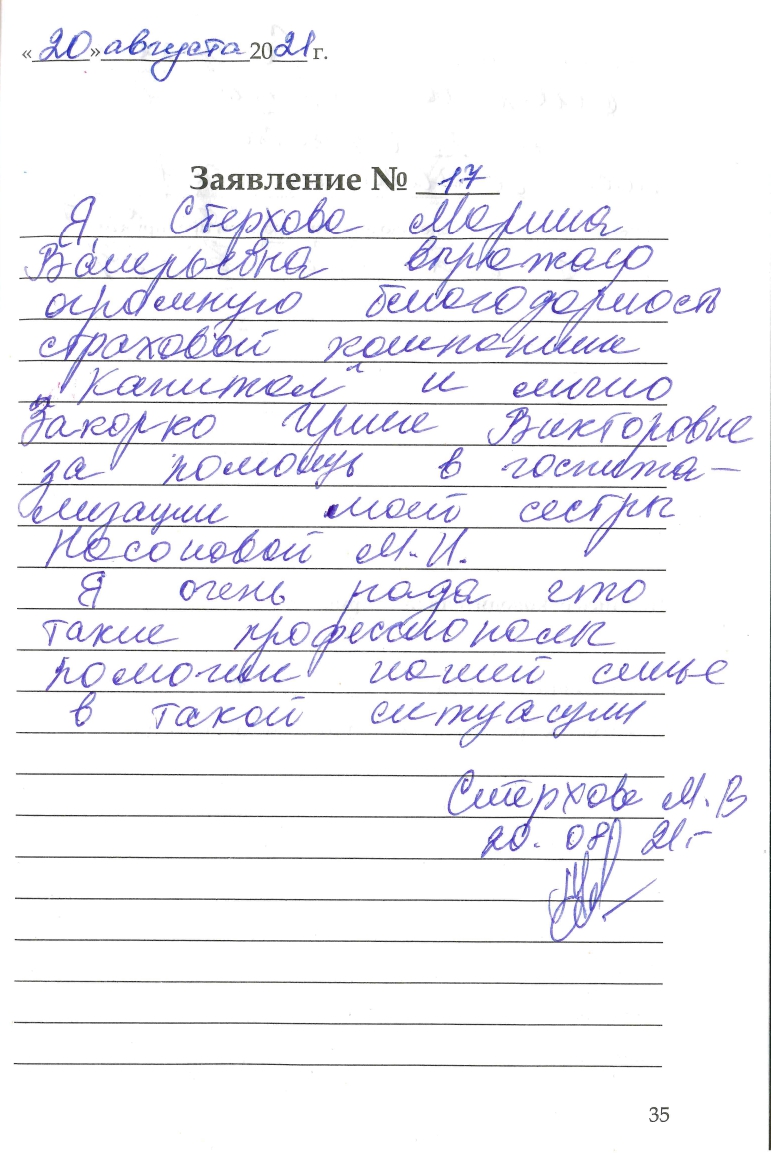 «20» августа 2021 г.
Заявление № 17
Я, Стерхова Марина
Валерьевна выражаю
огромную благодарность
страховой компании
„Капитал“ и лично
Закорко Ирине Викторовне
за помощь в госпита-
лизации моей сестры
Насоновой М.И.
Я очень рада что
такие профессионалы
помогли нашей семье
в такой ситуации
Стерхова М.В
20. 08 21г
35